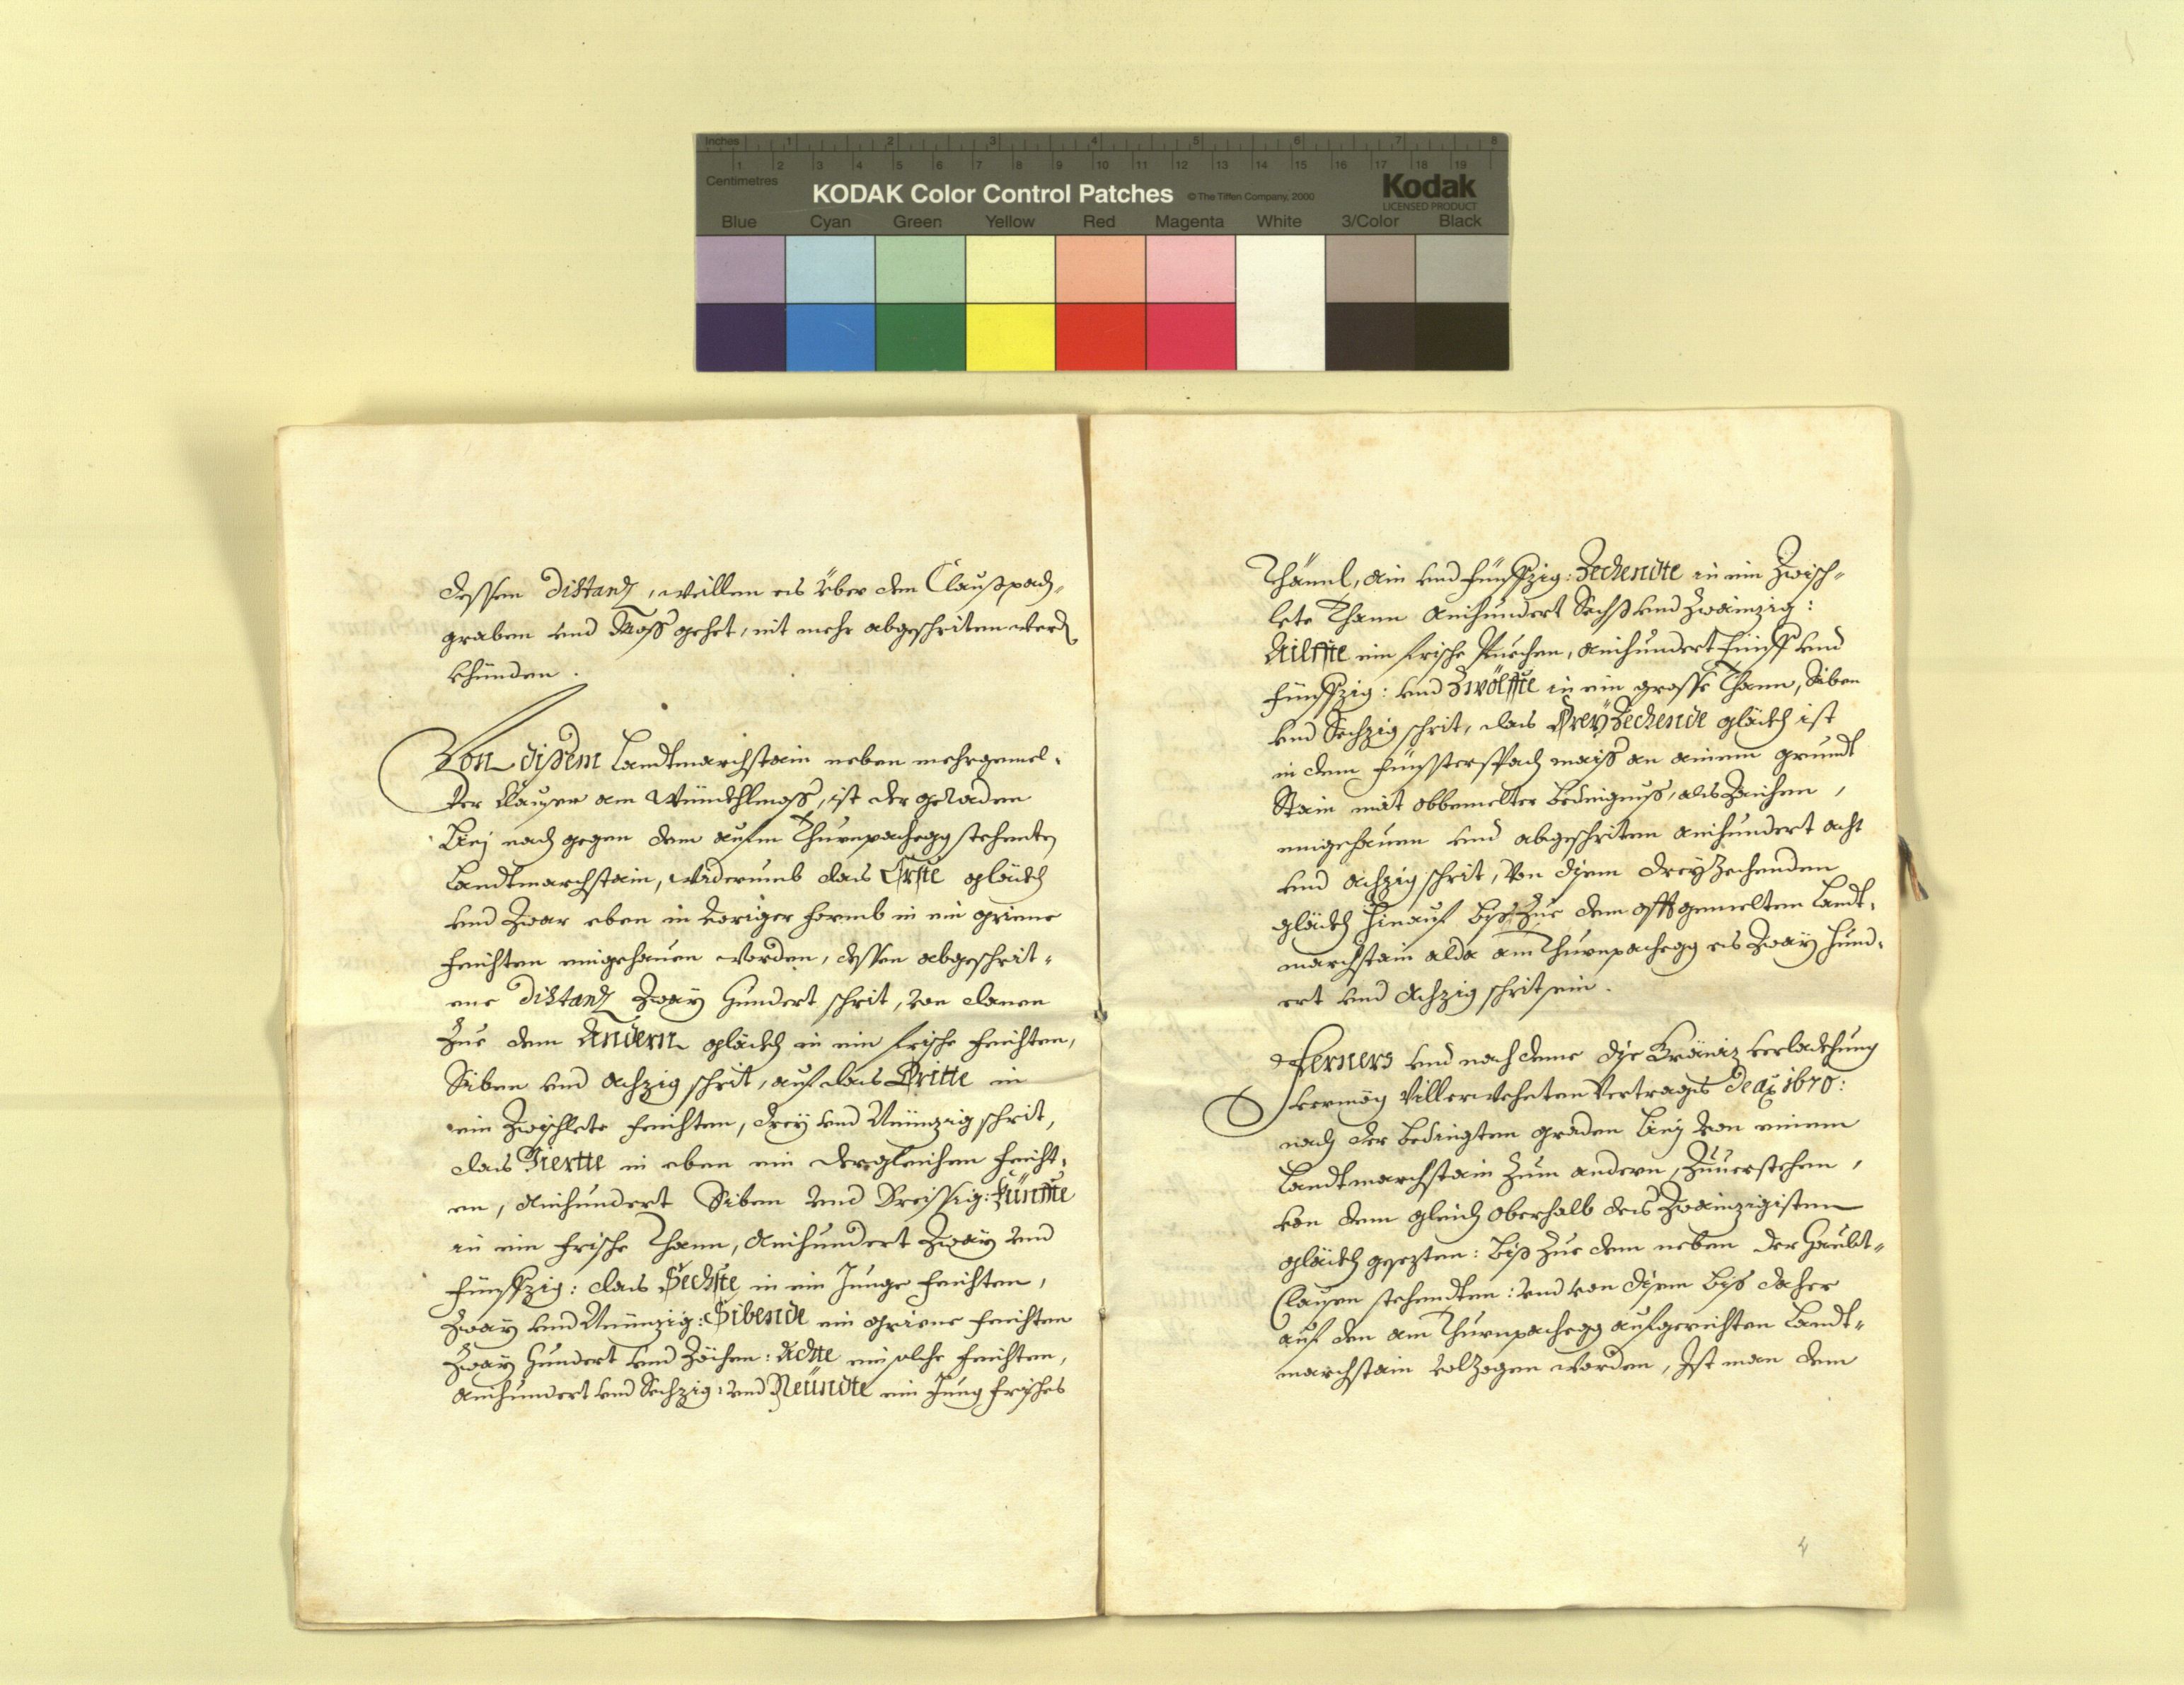 Inches 1 2 3 4 5 6 7 8
1 2 3 4 5 6 7 8 9 10 11 12 13 14 15 16 17 18 19
Centimetres
KODAK Color Control Patches © The Tiffen Company, 2000 Kodak
LICENSED PRODUCT
Blue Cyan Green Yellow Red Magenta White 3/Color Black
dessen Distanz, weillen es über den Claußpach-
graben und Moß gehet, nit mehr abgeschriten werden
khünden.
Von disem Landtmarchstain neben mehrgemel-
ter Clausen am Wündthlmoß, ist der geraden
Linj nach gegen dem aufm Thurnpachegg stehenten
Landtmarchstain, widerumb das Erste gläckh
und zwar eben in voriger formb in ein griene
feichten eingehauen worden, dessen abgeschrit-
ene Distanz Zway Hundert schrit, von danen
zue dem Andern gläckh in ein frische feichten,
Siben und achzig schrit, auf das Dritte in
ein zwischlete feichten, drey und Neünzig schrit,
das Viertte in eben ein dergleichen feicht-
en, Ainhundert Siben und Dreissig: Fünffte
in ein frische Thann, Ainhundert Zway und
fünffzig: das Sechste in ein Junge feichten,
Zway und Neünzig: Sibende ein griene feichten
Zway Hundert und Zöchen: Achte ein solche feichten,
Ainhundert und Sechzig: und Neündte ein Jung frisches
Thännl, ain und fünffzig: Zechendte in ein Zwisch-
lete Thann Ainhundert Sechß und Zwainzig:
Ailffte ein frische Puechen, Ainhundert fünff und
fünffzig: und Zwölffte in ein grosse Thann, Siben
und Sechzig schrit, das Dreyzechende gläckh ist
in dem fünsterspach maiß an ainem grundt
Stain mit obbemelter bedingnuß, als Zaichen,
eingehauen und abgeschriten Ainhundert acht
und achzig schrit, von disem dreyzechenden
gläckh hinauf biß zue dem offtgemelten Landt-
marchstain alda am Thurnpachegg es Zway hund-
ert und Achzig schrit sein.
Ferners und nach deme dise Gräniz verlackhung
vermög Villerwehnten Vertrags de ao 1670:
nach der bedingten graden Linj von einem
Landtmarchstain zum andern, Zuuerstehen,
von dem gleich oberhalb des Zwainzigisten
gläckh gesezten: biß zue dem neben der Haubt-
Clausen stehendten: und von disem biß daher
auf den am Thurnpachegg aufgerichten Landt-
marchstain volzogen worden, Ist man dem
4